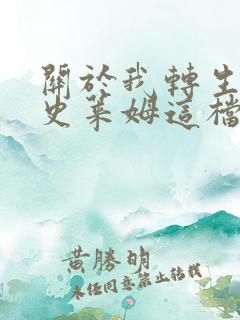 關於我轉生
史萊姆這檔
黃勝明
未經同意禁止轉載